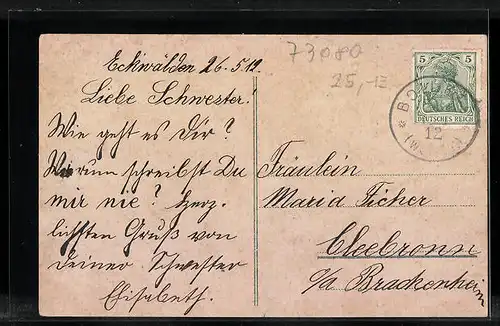 73080
25,-
Eckwälden 26.5.12.
Liebe Schwester!
Wie geht es Dir?
Warum schreibst Du
mir nie? Herz-
lichsten Gruß von
deiner Schwester
Elisabeth.
5 5
DEUTSCHES REICH
BO
12
Fräulein
Maria Ficher
Cleebronn
o/a Brackenheim